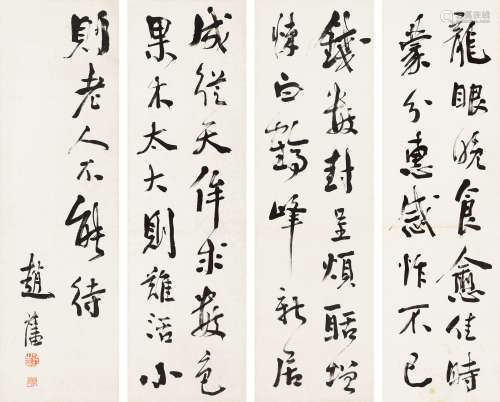 龍眼晚食愈佳時
蒙分惠感怍不已
錢數封呈煩聒增
悚白鶴峰新居
成從天侔求數色
果木太大則難活小
則老人不能待
趙藩